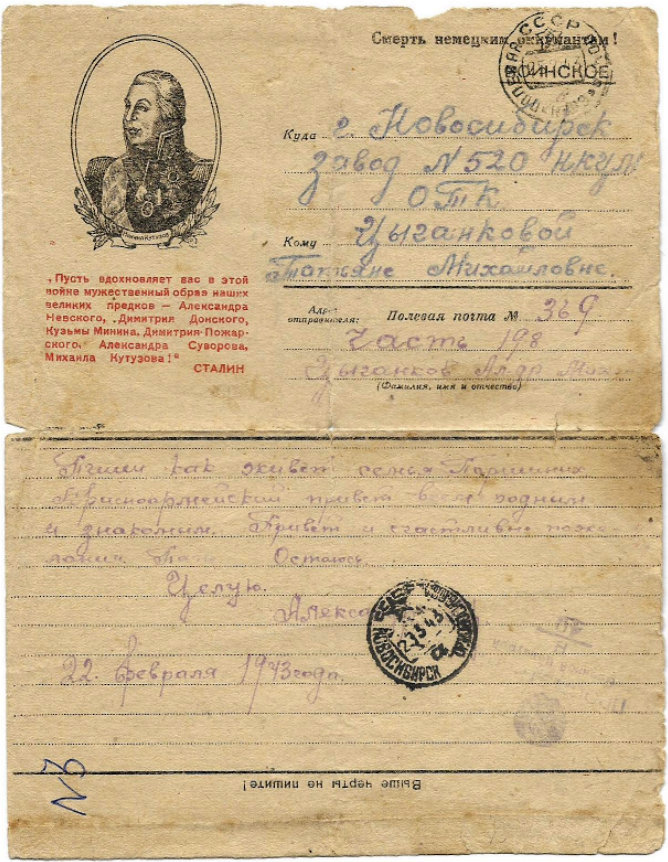 Смерть немецким оккупантам!
СССР
ВОИНСКОЕ
Куда г. Новосибирск
завод N 520 НКУМ
ОТК
Кому Цыганковой
Татьяне Михайловне.
Адрес отправителя: Полевая почта № 369
Часть 198
Цыганков Алдр Мих
(Фамилия, имя и отчество)
Михаил Кутузов
„Пусть вдохновляет вас в этой
войне мужественный образ наших
великих предков — Александра
Невского, Димитрия Донского,
Кузьмы Минина, Димитрия Пожар-
ского, Александра Суворова,
Михаила Кутузова!"
СТАЛИН
Пиши как живет семья Паршиных
Красноармейский привет всем родным
и знакомым. Привет и счастливые
Остаюсь.
Целую.
22 февраля 1943 года.
НОВОСИБИРСК
N3
Выше черты не пишите!